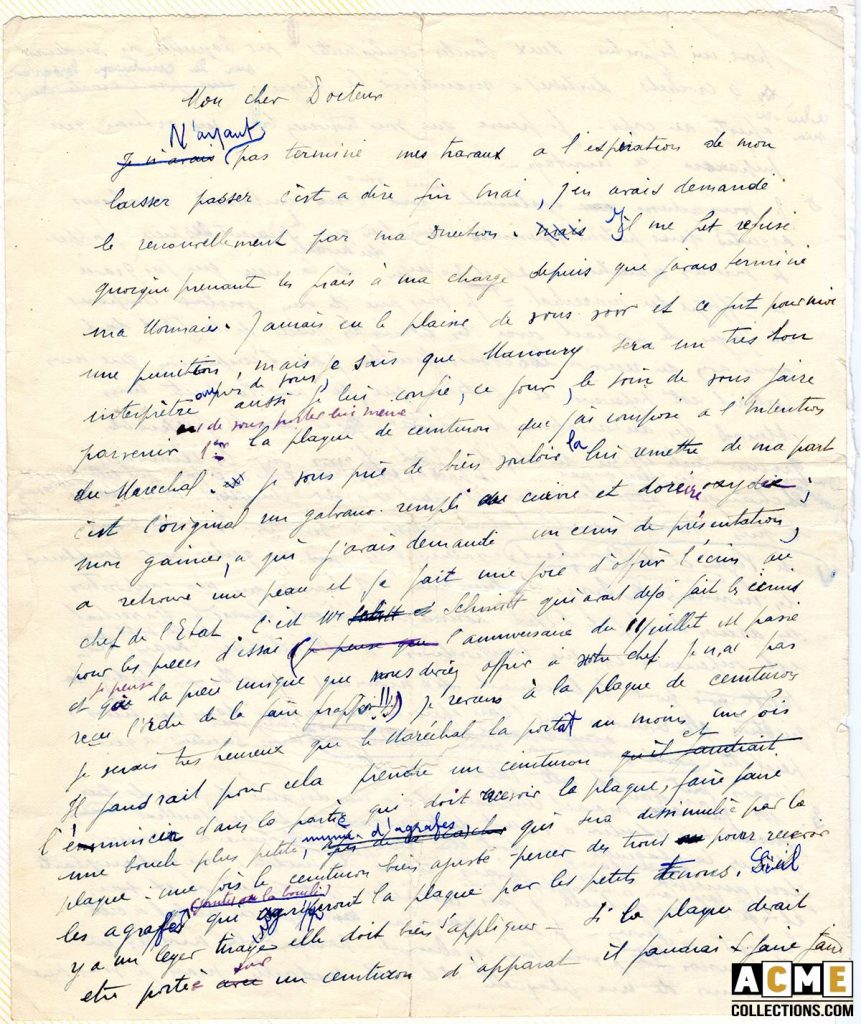 Mon cher Docteur
N'ayant
Je n'avais pas terminé mes travaux a l'expiration de mon
laisser passer c'est a dire fin mai, j'en avais demandé
le renouvellement par ma Direction. mais Il me fut refusé
quoique prenant les frais à ma charge depuis que j'avais terminé
ma Monnaie. J'aurais eu le plaisir de vous voir et ce fut pour moi
une punition, mais je sais que Manoury sera un tres bon
interprète auprès de vous, aussi je lui confie, ce jour, le soin de vous faire
de vous porter lui même
parvenir la plaque de ceinturon que j'ai composé a l'intention
du Marechal. Je vous prie de bien vouloir la lui remettre de ma part
c'est l'original un galvano rempli cuivre et doré oxydé;
mon gainier, a qui j'avais demandé un écrin de présentation,
a retrouvé une peau et se fait une joie d'offrir l'écrin au
chef de l'Etat c'est Mr Schmidt qui avait déjà fait les écrins
pour les pieces d'essai (je pense que l'anniversaire du 11 juillet est passé
je pense
et que la pièce unique que vous deviez offrir à votre chef je n'ai pas
reçu l'ordre de la faire frapper!!!) Je reviens à la plaque de ceinturon
je serais tres heureux que le Maréchal la portat au moins une fois
et
Il faudrait pour cela prendre un ceinturon qu'il faudrait
l'émincer dans la partie qui doit recevoir la plaque, faire faire
munie d'agrafes
une boucle plus petite, qui sera dissimulée par la
plaque: une fois le ceinturon bien ajusté percer des trous pour recevoir
les agrafes que la plaque par les petits tenons. S'il
y a un leger tirage elle doit bien s'appliquer – Si la plaque devait
sur
etre portée avec un ceinturon d'apparat il faudrait faire faire
ACME
COLLECTIONS.COM